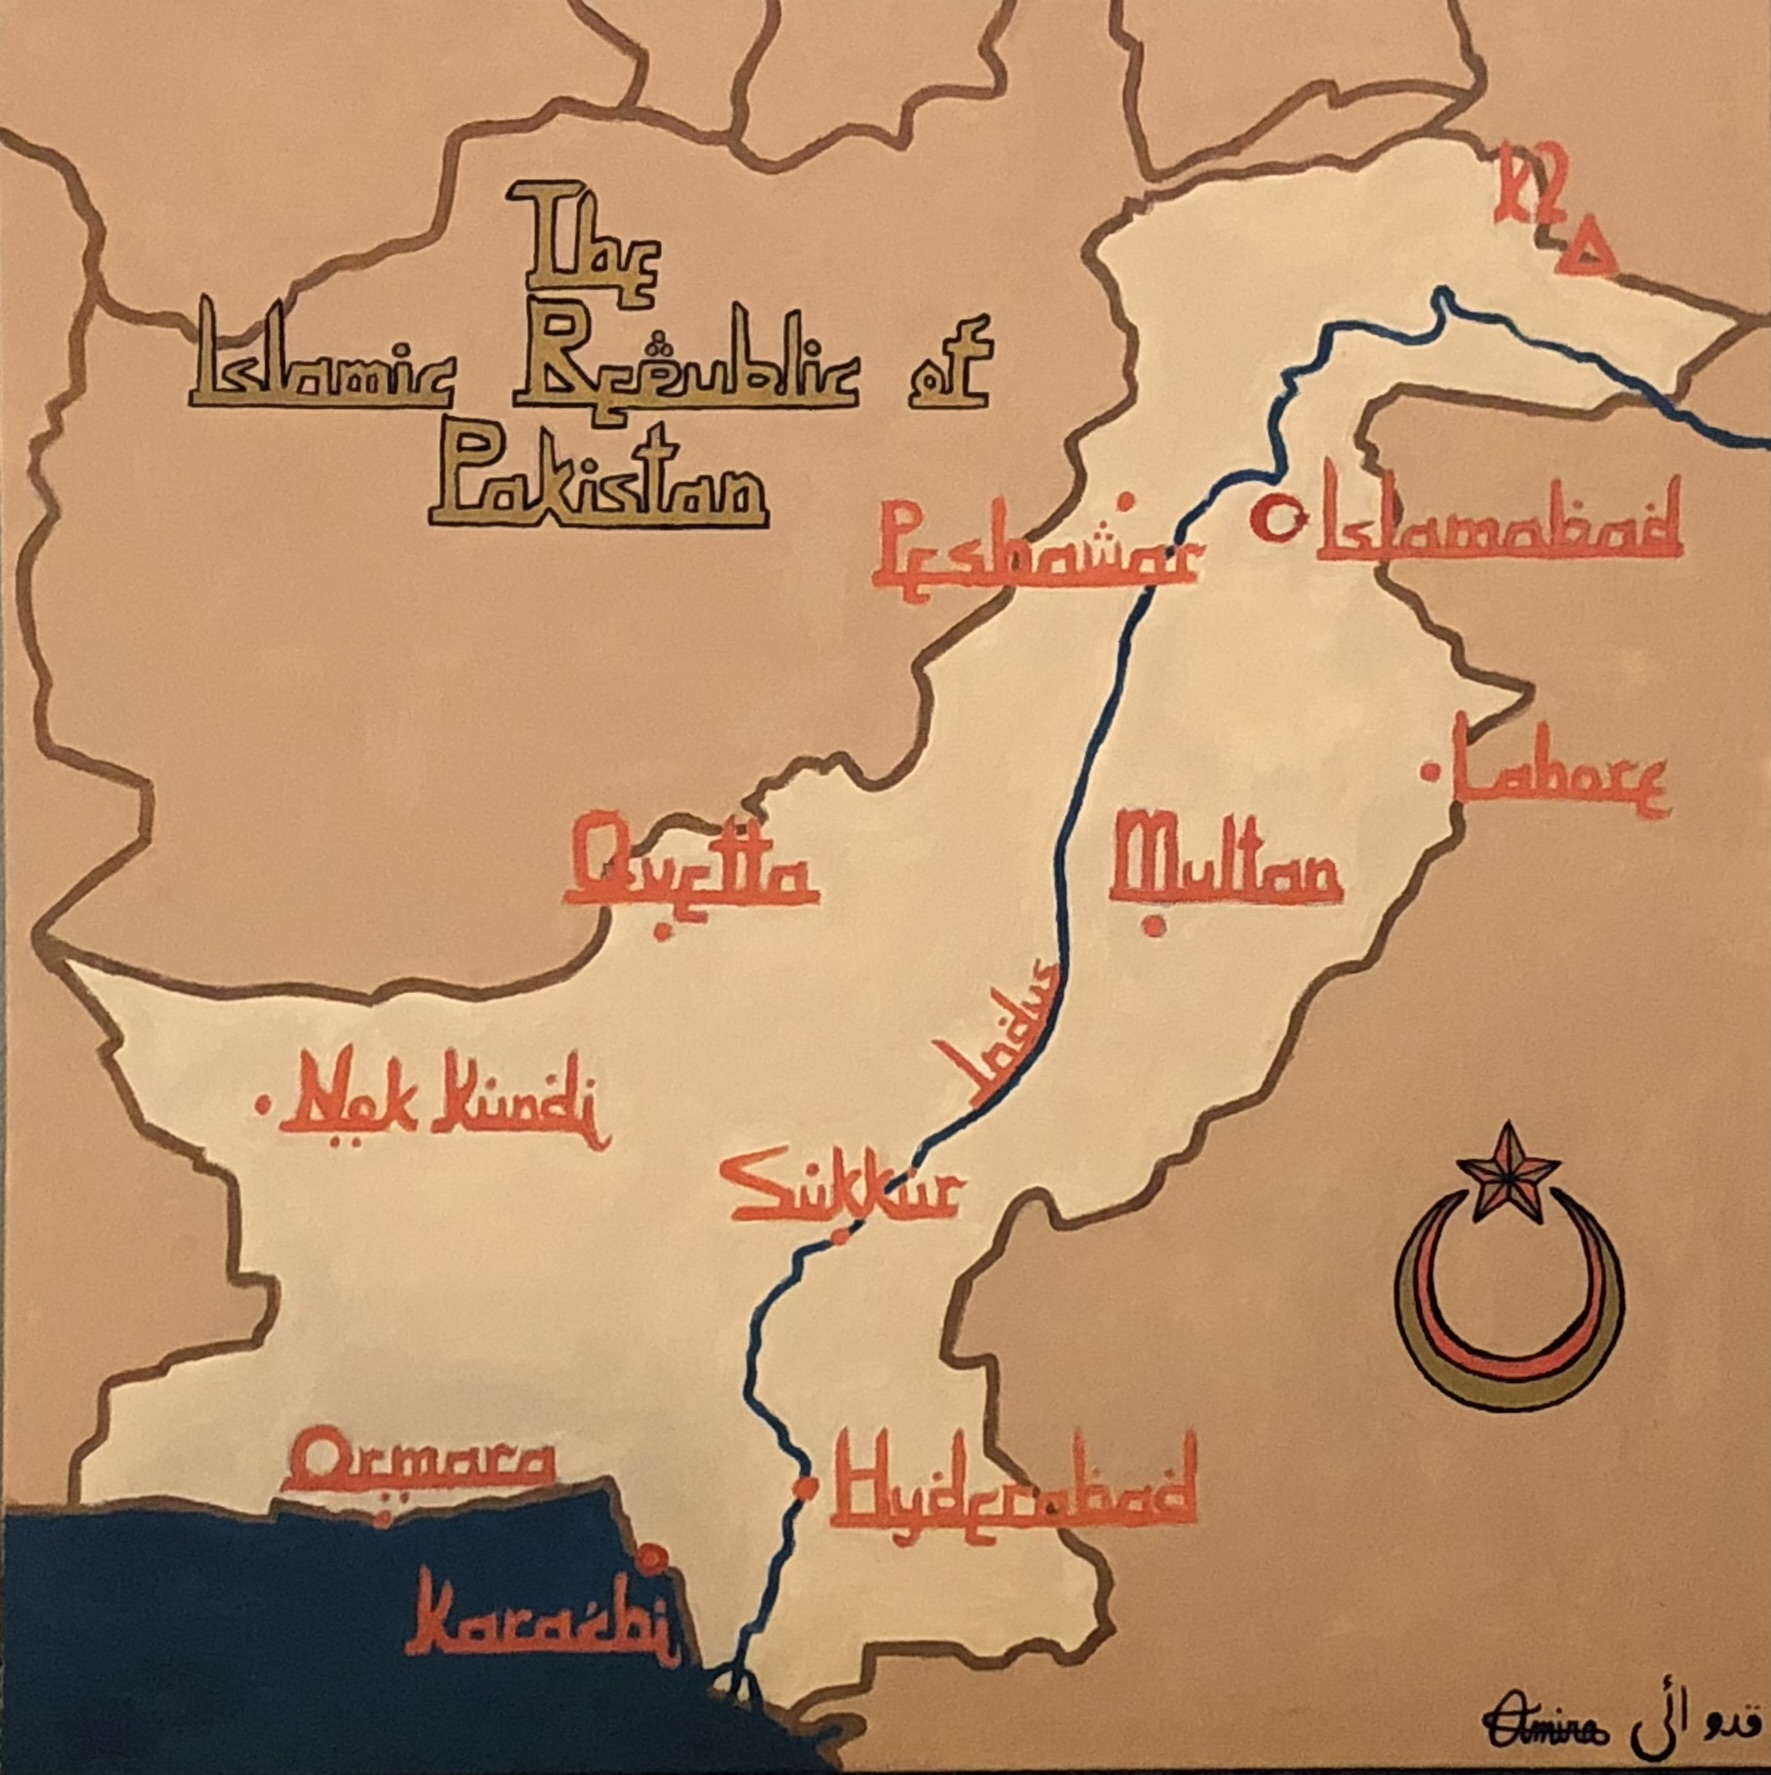 The
Islamic Republic of
Pakistan
K2
Peshawar
Islamabad
Lahore
Quetta
Multan
Indus
Nok Kundi
Sukkur
Ormara
Hyderabad
Karachi
Amira